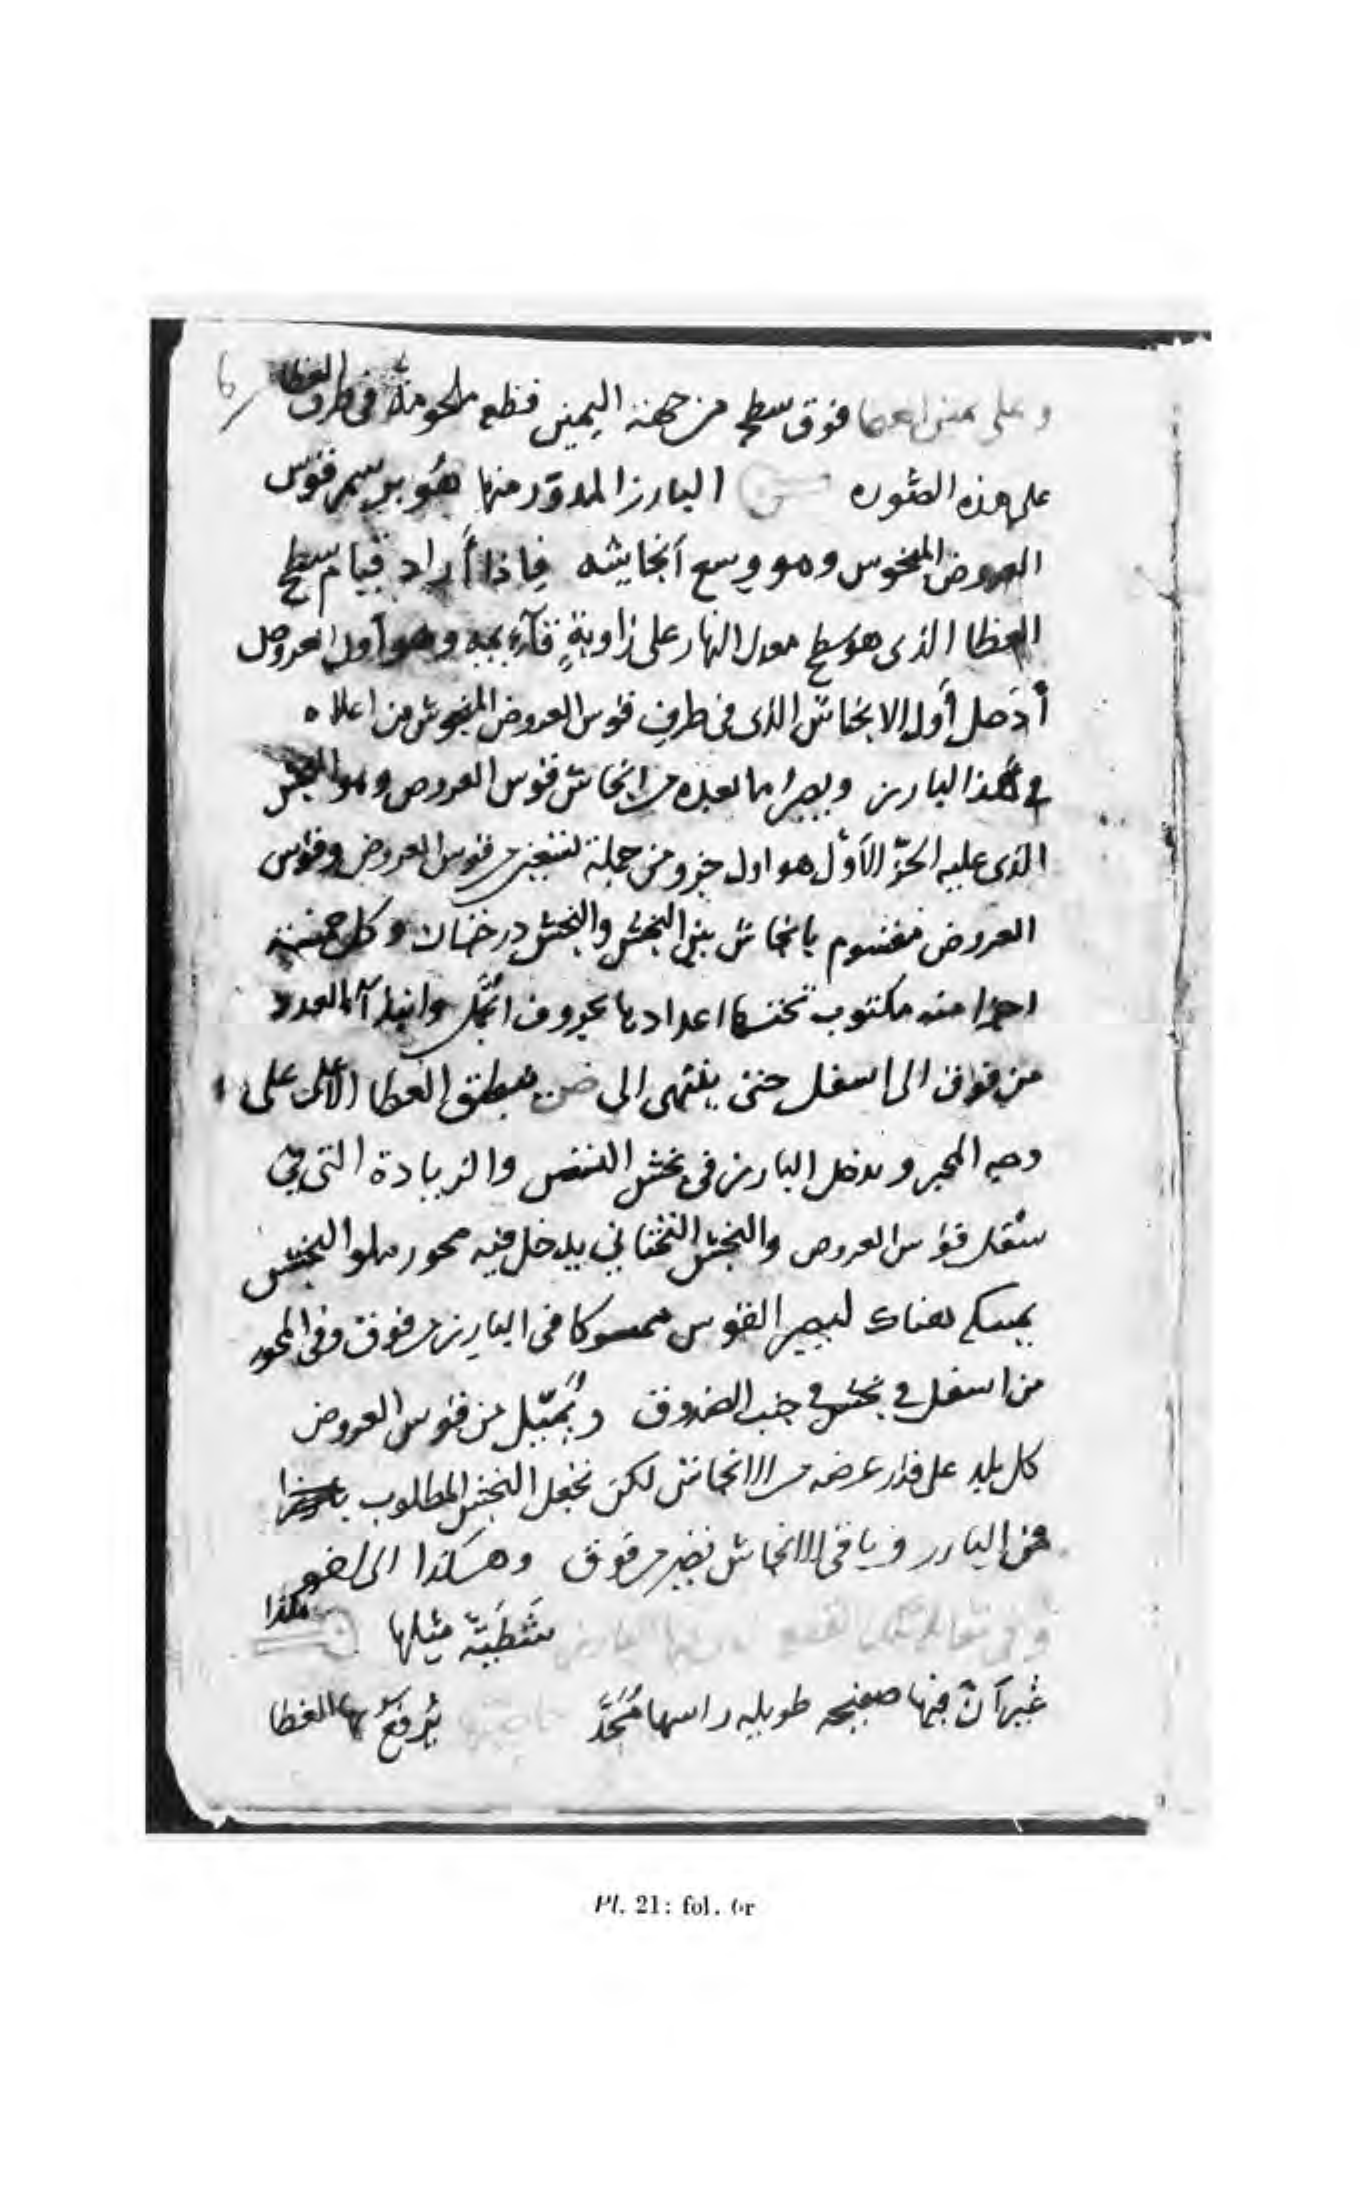 6
وعلى يمين الغطا فوق سطح من جهة اليمين قطعه ملحومة فى طرف الغطا
على هذه الصوره البارز المدور منها هو برسم قوس
العروض المنخوش وهو وسع أنخاشه فاذا أراد قيام سطح
الغطا الذى هو سطح معدل النهار على زاوية قآيمه وهو أول العروض
أدخل أول الانخاش الذى فى طرف قوس العروض المنخوش من اعلاه
فى هذا البارز ويصير ما بعده من انخاش قوس العروض وهو النخش
الذى عليه الجزؤ الأول هو اول جزو من جملة تسعين من قوس العروض وقوس
العروض مقسوم بانخاش بين النخش والنخش درجتان وكل خمسة
اجزا منه مكتوب تحتها اعدادها بحروف الجمل وابتدآء العدد
من فوق الى اسفل حتى ينتهى الى ص فينطبق الغطا الأعلى على
وجه المجر ويدخل البارز فى نخش التسعين والزيادة التى فى
سفل قوس العروض والنخش التحتانى يدخل فيه محور يملو النخش
يمسكه هناك ليصير القوس ممسوكا فى البارز من فوق وفى المحور
من اسفل فى نخش فى جنب الصندوق ويميل من قوس العروض
كل بلد على قدر عرضه من الانخاش لكن نجعل النخش المطلوب
من البارز وباقى الانخاش تصير من فوق وهكذا الى
وفى شظية مثلها هكذا
غير أن فيها صفيحه طويله راسها يرفع بها الغطا
Pl. 21: fol. 6r